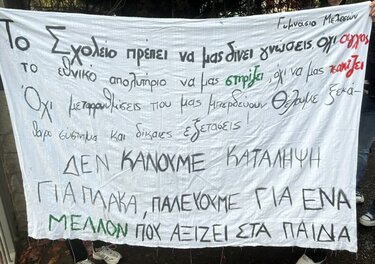 Γυμνάσιο Μελεσών
Το Σχολείο πρέπει να μας δίνει γνώσεις όχι άγχος
το εθνικό απολυτήριο να μας στηρίζει, όχι να μας τσακίζει
Όχι μεταρρυθμίσεις που μας μπερδεύουν Θέλουμε ξεκά-
θαρο σύστημα και δίκαιες εξετάσεις!
ΔΕΝ ΚΑΝΟΥΜΕ ΚΑΤΑΛΗΨΗ
ΓΙΑ ΠΛΑΚΑ, ΠΑΛΕΥΟΥΜΕ ΓΙΑ ΕΝΑ
ΜΕΛΛΟΝ ΠΟΥ ΑΞΙΖΕΙ ΣΤΑ ΠΑΙΔΙΑ